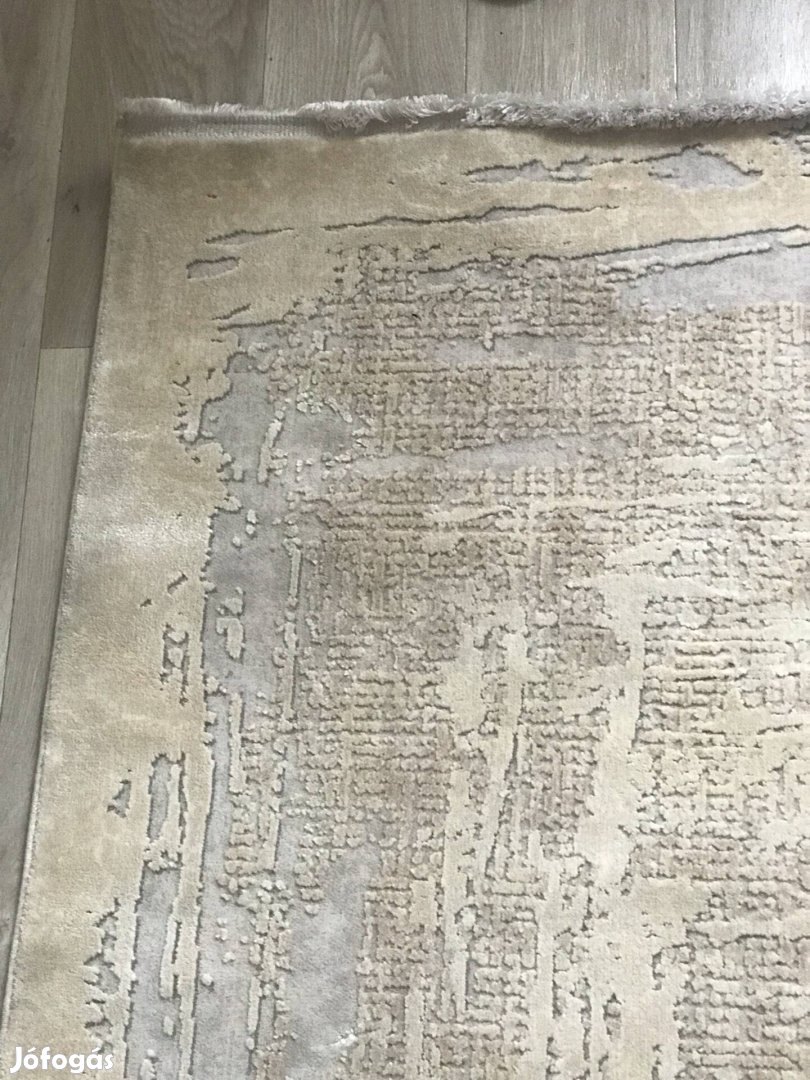 Jófogás